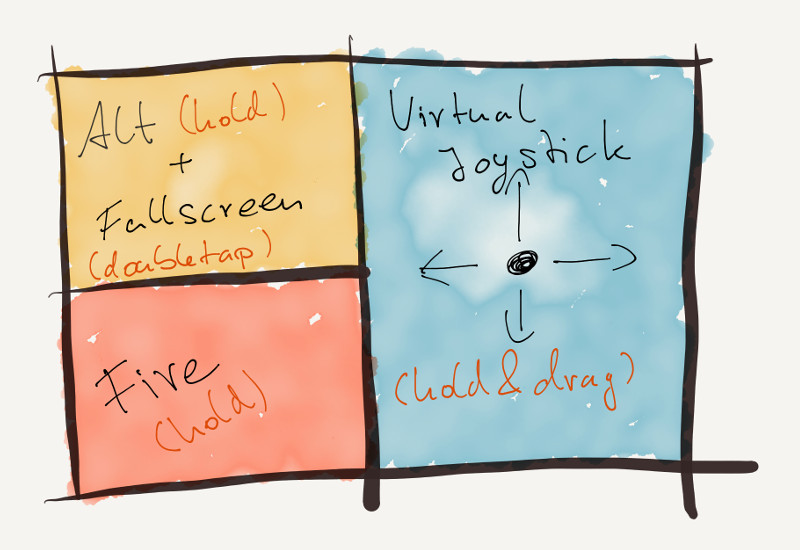 Alt (hold)
+
Fullscreen
(doubletap)
Fire
(hold)
Virtual
Joystick
(hold & drag)